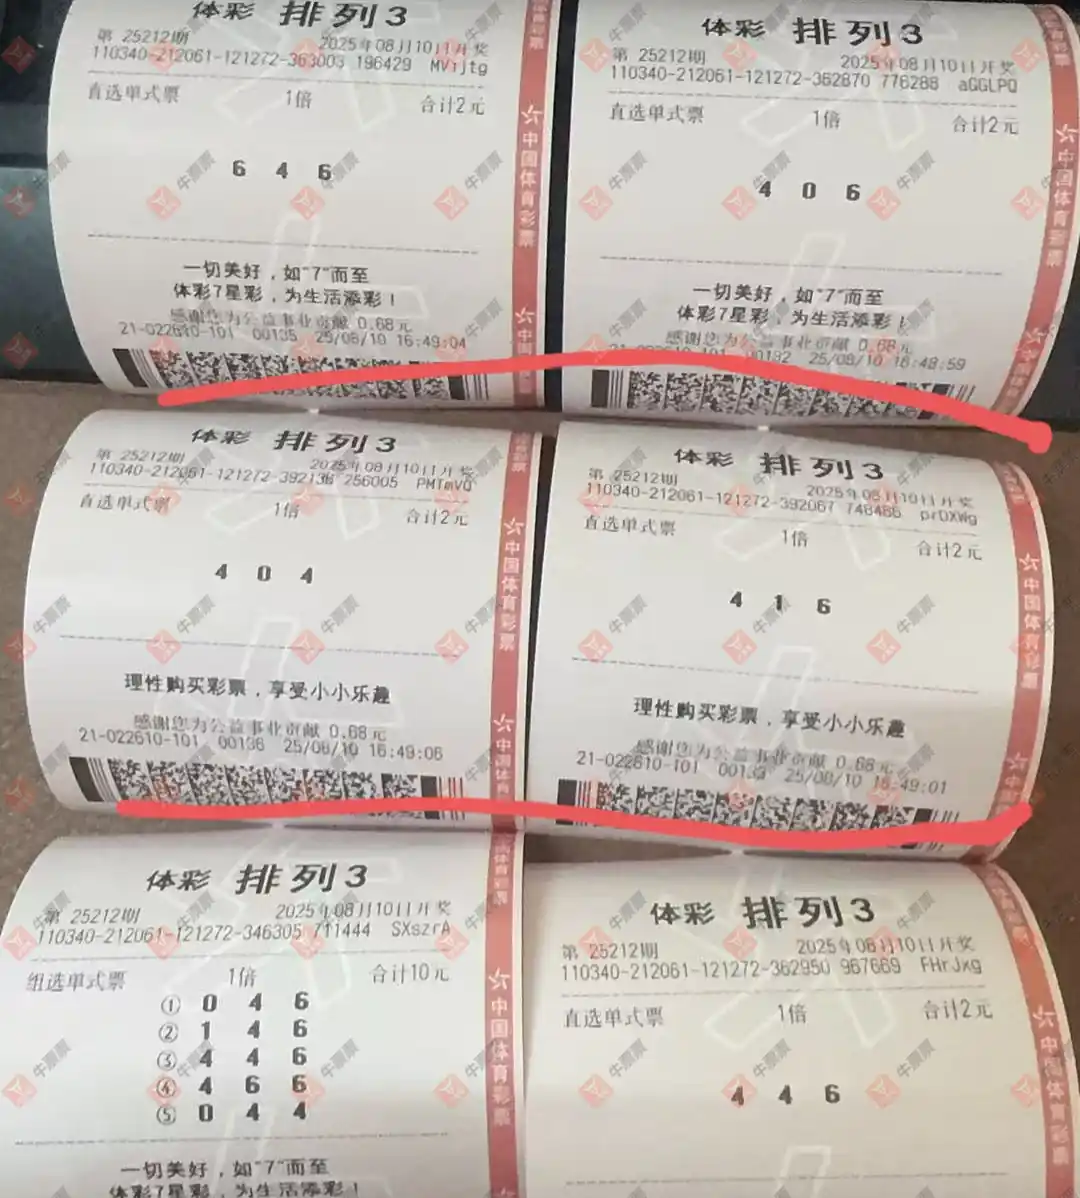 体彩 排列3
第 25212期 2025年08月10日开奖
110340-212061-121272-363003 196429 MVijtg
直选单式票 1倍 合计2元
6 4 6
一切美好,如"7"而至
体彩7星彩,为生活添彩!
感谢您为公益事业贡献 0.68元
21-022610-101 00135 25/08/10 16:49:04
中国体育彩票
体彩 排列3
第 25212期 2025年08月10日开奖
110340-212061-121272-362870 776288 aGGLPQ
直选单式票 1倍 合计2元
4 0 6
一切美好,如"7"而至
体彩7星彩,为生活添彩!
感谢您为公益事业贡献 0.68元
21-022610-101 00132 25/08/10 16:48:59
中国体育彩票
体彩 排列3
第 25212期 2025年08月10日开奖
110340-212061-121272-392136 256005 PMTmVQ
直选单式票 1倍 合计2元
4 0 4
理性购买彩票,享受小小乐趣
感谢您为公益事业贡献 0.68元
21-022610-101 00136 25/08/10 16:49:06
中国体育彩票
体彩 排列3
第 25212期 2025年08月10日开奖
110340-212061-121272-392067 748486 prDXWg
直选单式票 1倍 合计2元
4 1 6
理性购买彩票,享受小小乐趣
感谢您为公益事业贡献 0.68元
21-022610-101 00133 25/08/10 16:49:01
中国体育彩票
体彩 排列3
第 25212期 2025年08月10日开奖
110340-212061-121272-346305 711444 SXszrA
组选单式票 1倍 合计10元
① 0 4 6
② 1 4 6
③ 4 4 6
④ 4 6 6
⑤ 0 4 4
一切美好,如"7"而至
体彩7星彩,为生活添彩!
中国体育彩票
体彩 排列3
第 25212期 2025年08月10日开奖
110340-212061-121272-362950 967669 FHrJxg
直选单式票 1倍 合计2元
4 4 6
中国体育彩票
牛票票